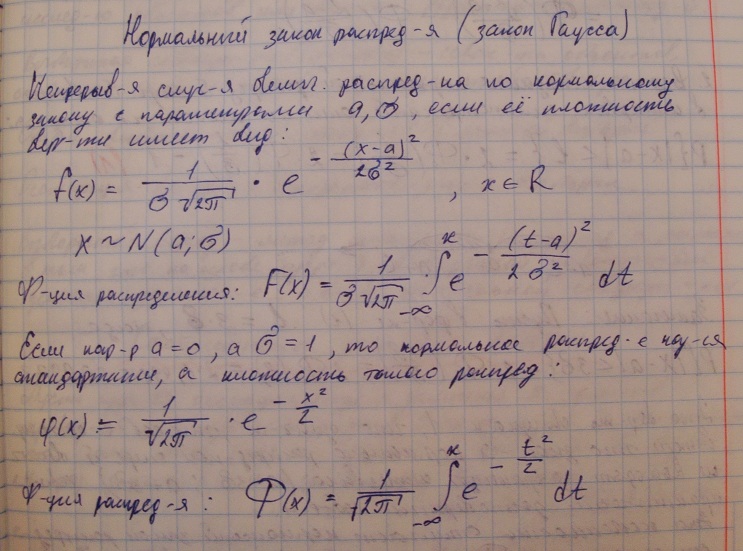 Нормальный закон распред-я (закон Гаусса)
Непрерыв-я случ-я велич. распред-на по нормальному
закону с параметрами a, σ, если её плотность
вер-ти имеет вид:
f(x) = 1/(σ√2π) · e^(-(x-a)²/2σ²) , x ∈ R
X ~ N(a; σ)
Ф-ция распределения: F(x) = 1/(σ√2π) · ∫_{-∞}^{x} e^(-(t-a)²/2σ²) dt
Если пар-р a = 0, а σ = 1, то нормальное распред-е наз-ся
стандартным, а плотность такого распред:
φ(x) = 1/√2π · e^(-x²/2)
Ф-ция распред-я: Ф(x) = 1/√2π ∫_{-∞}^{x} e^(-t²/2) dt